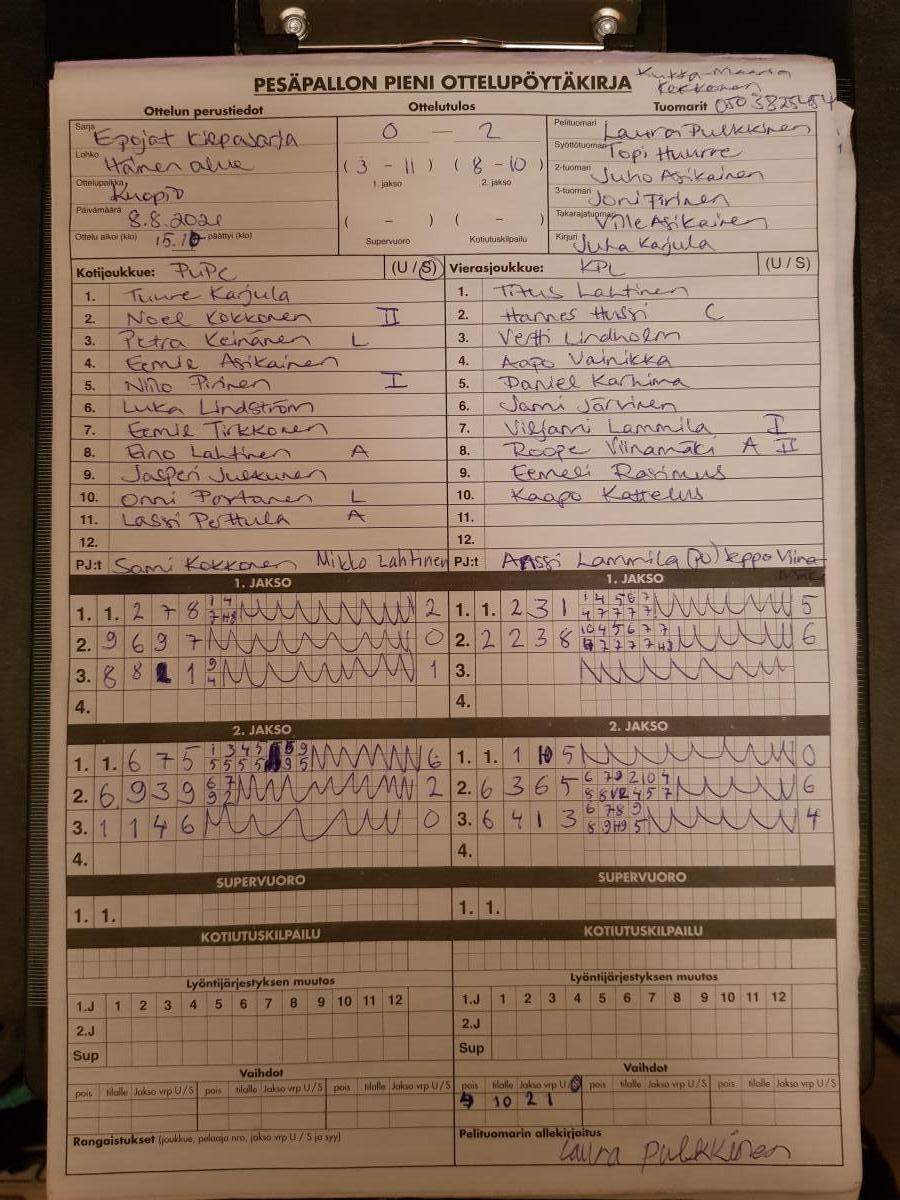 PESÄPALLON PIENI OTTELUPÖYTÄKIRJA
Kokkonen
Ottelun perustiedot Ottelutulos Tuomarit
Sarja Epojat kilpasarja 0 - 2 Pelituomari Laura Pulkkinen
Lohko Hämeen alue (3 - 11) (8 - 10) Syöttötuomari Topi Huurre
1. jakso 2. jakso 2-tuomari Juho Asikainen
Ottelupaikka Kuopio 3-tuomari Joni Pirinen
Päivämäärä 8.8.2021 ( - ) ( - ) Takarajatuomari Ville Asikainen
Ottelu alkoi (klo) päättyi (klo) Supervuoro Kotiutuskilpailu Kirjuri Juha Karjula
Kotijoukkue: PuPe (U / S) Vierasjoukkue: KPL (U / S)
1. Tuure Karjula 1. Titus Lahtinen
2. Noel Kokkonen II 2. Hannes Hussi C
3. Petra Keinänen L 3. Vertti Lindholm
4. Eemil Asikainen 4. Aapo Vainikka
5. Niilo Pirinen I 5. Daniel Karhima
6. Luka Lindström 6. Jami Järvinen
7. Eemil Tirkkonen 7. Viljami Lammila I
8. Eino Lahtinen A 8. Roope Viinamäki A II
9. Jasperi Julkunen 9. Eemeli Rasimus
10. Onni Partanen L 10. Kaapo Kattelus
11. Lassi Perttula A 11.
12. 12.
PJ:t Sami Kokkonen Mikko Lahtinen PJ:t Anssi Lammila (PJ) Seppo Viina-
mäki
1. JAKSO 1. JAKSO
1. 1. 2 7 8 2 1. 1. 2 3 1 5
2. 9 6 9 7 0 2. 2 2 3 8 6
3. 8 8 1 1 3.
4. 4.
2. JAKSO 2. JAKSO
1. 1. 6 7 5 6 1. 1. 1 5 0
2. 6 9 3 9 2 2. 6 3 6 5 6
3. 1 1 4 6 0 3. 6 4 1 3 4
4. 4.
SUPERVUORO SUPERVUORO
1. 1. 1. 1.
KOTIUTUSKILPAILU KOTIUTUSKILPAILU
Lyöntijärjestyksen muutos Lyöntijärjestyksen muutos
1.J 1 2 3 4 5 6 7 8 9 10 11 12 1.J 1 2 3 4 5 6 7 8 9 10 11 12
2.J 2.J
Sup Sup
Vaihdot Vaihdot
pois tilalle Jakso vrp U / S pois tilalle Jakso vrp U / S pois tilalle Jakso vrp U / S pois tilalle Jakso vrp U / S pois tilalle Jakso vrp U / S pois tilalle Jakso vrp U / S
10 2 1
Rangaistukset (joukkue, pelaaja nro, jakso vrp U / S ja syy) Pelituomarin allekirjoitus
Laura Pulkkinen